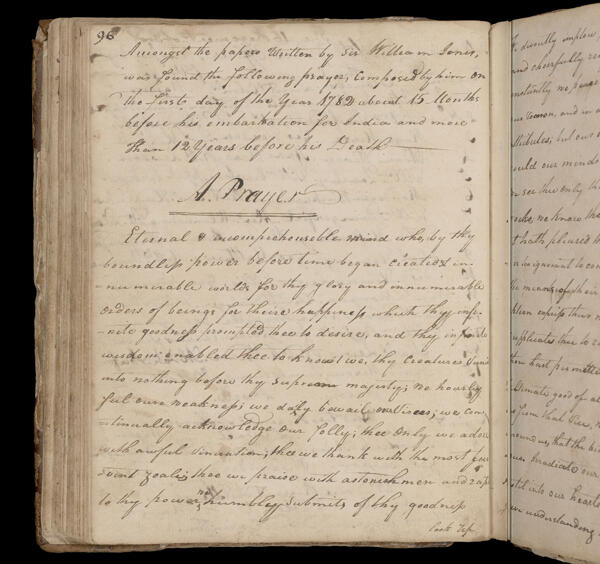 96
Amongst the papers Written by Sir William Jones,
was found the following prayer, Composed by him on
the first day of the Year 1782 about 15 Months
before his embarkation for India and more
Than 12 Years before his Death
A Prayer
Eternal & incomprehensible mind who, by thy
boundless power before time began created in-
-numerable worlds for thy glory and innumerable
orders of beings for theire happiness which thy infi-
-nite goodness prompted thee to desire, and thy infinite
wisdom enabled thee to know; we, thy Creatures
into nothing before thy supream majesty; we hourly
ful oure weakness; we daly bewail our vices; we con-
-tinually acknowledge our folly; thee only we adore
with awful; thee we thank with the most fer-
-vent zeale; thee we praise with astonishmen and rap
to thy power we humbley submits of thy goodness
directly implore
and cheerfully
we
reason, and in a
; but our
our minds
see thee only th
we know tha
t hath pleased
to con
the means of their
their
supplicates thee to
hast permitte
Ultimate good of al
from that
round us, that the
Eradicate our
into our hearts
understanding